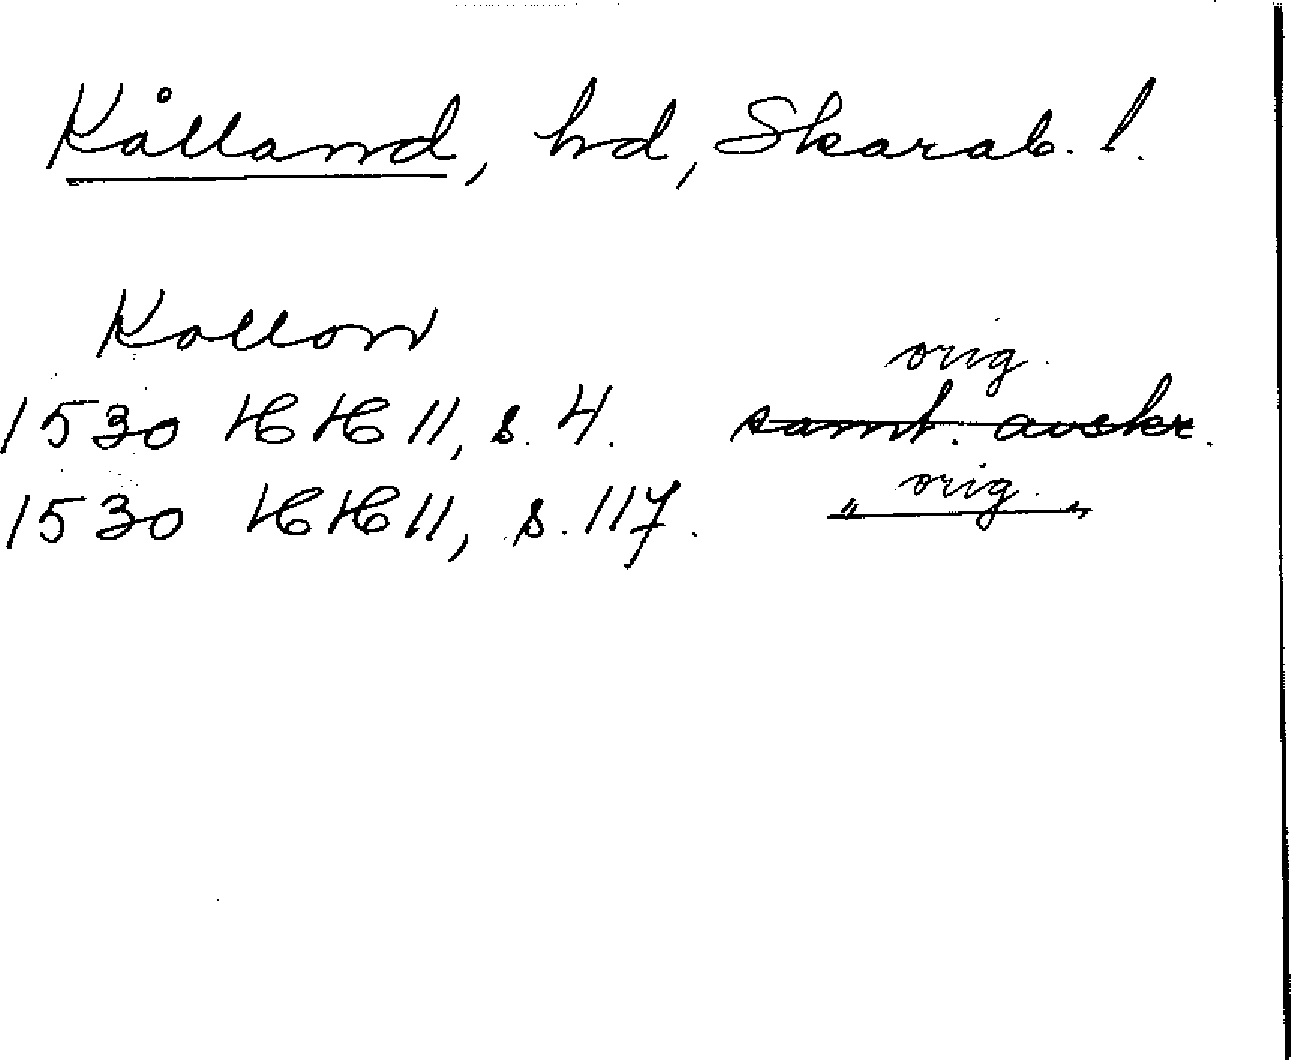 Kålland, hd, Skarab. l.
Kollon
orig.
1530 HH 11, s. 4. samt. avskr.
orig.
1530 HH 11, s. 117. " "